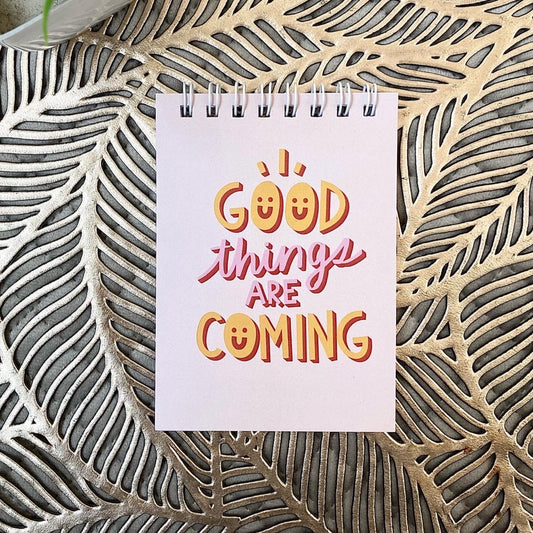 GOOD
things
ARE
COMING